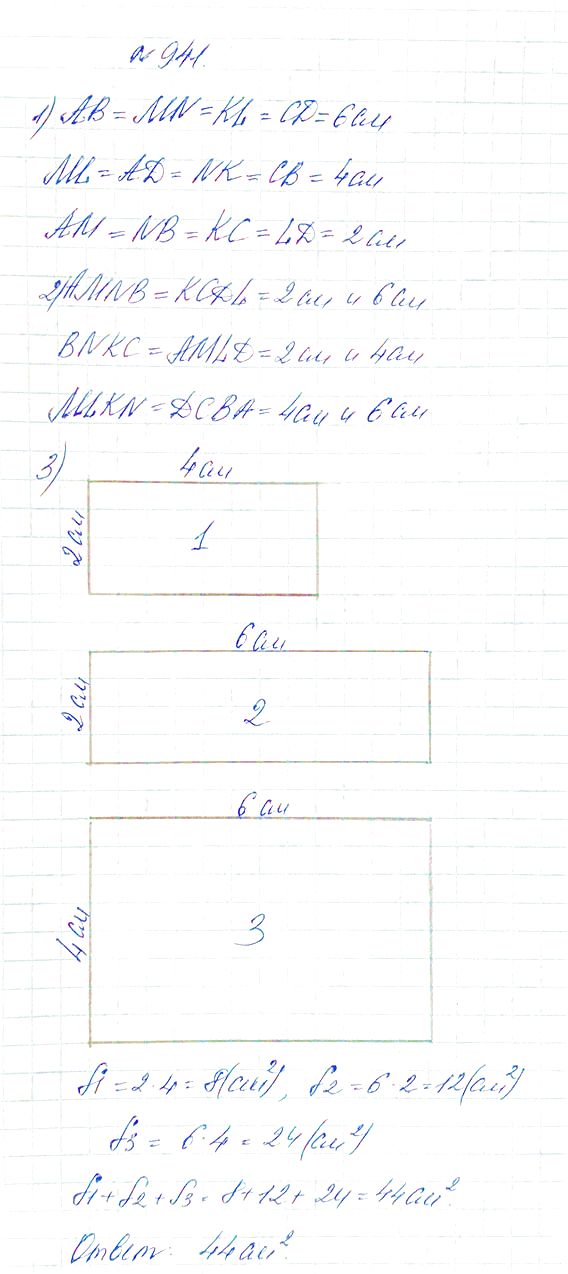 № 941.
1) AB = MN = KL = CD = 6 см
ML = AD = NK = CB = 4 см
AM = NB = KC = LD = 2 см
2) AMNB = KCDL = 2 см и 6 см
BNKC = AMLD = 2 см и 4 см
MLKN = DCBA = 4 см и 6 см
3)
4 см
2 см
1
6 см
2 см
2
6 см
4 см
3
S1 = 2 · 4 = 8 (см²), S2 = 6 · 2 = 12 (см²)
S3 = 6 · 4 = 24 (см²)
S1 + S2 + S3 = 8 + 12 + 24 = 44 см².
Ответ: 44 см².